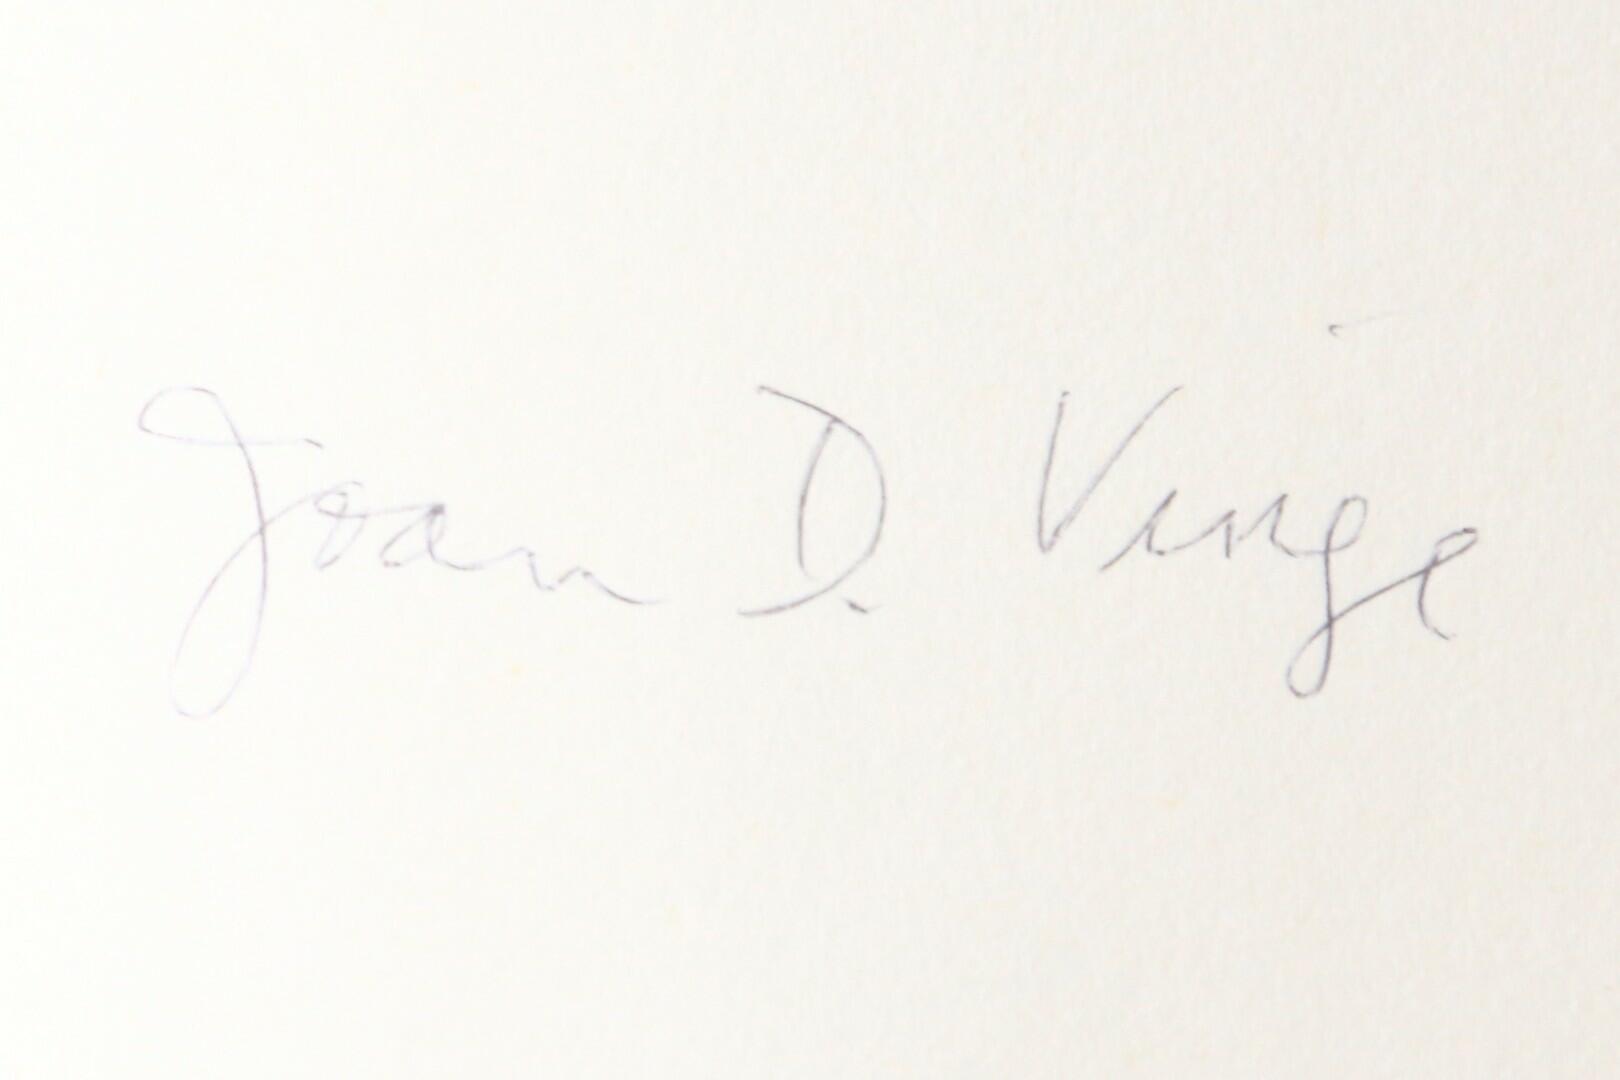 Joan D. Vinge